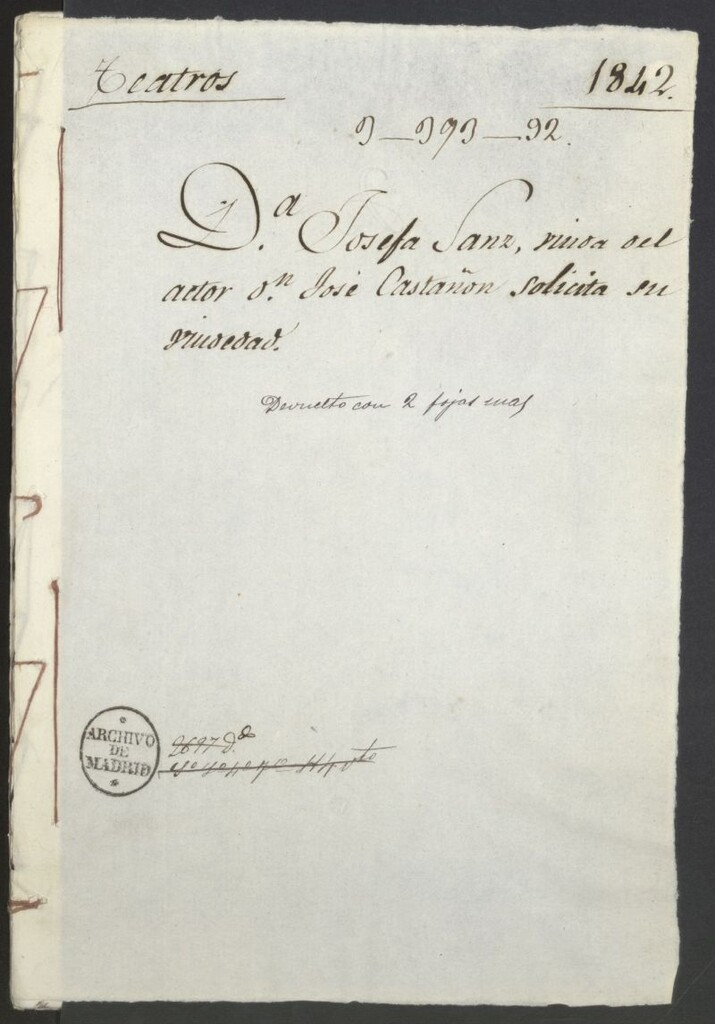 Teatros
1842.
3—393—32.
D.ª Josefa Sanz, viuda del
actor d.n José Castañon solicita su
viudedad.
Devuelto con 2 fojas mas
ARCHIVO
DE
MADRID
2697 d.do